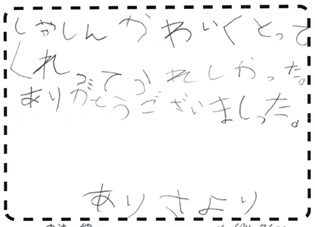 しゃしんかわいくとって
くれってうれしかった。
ありがとうございましった。
ありさより